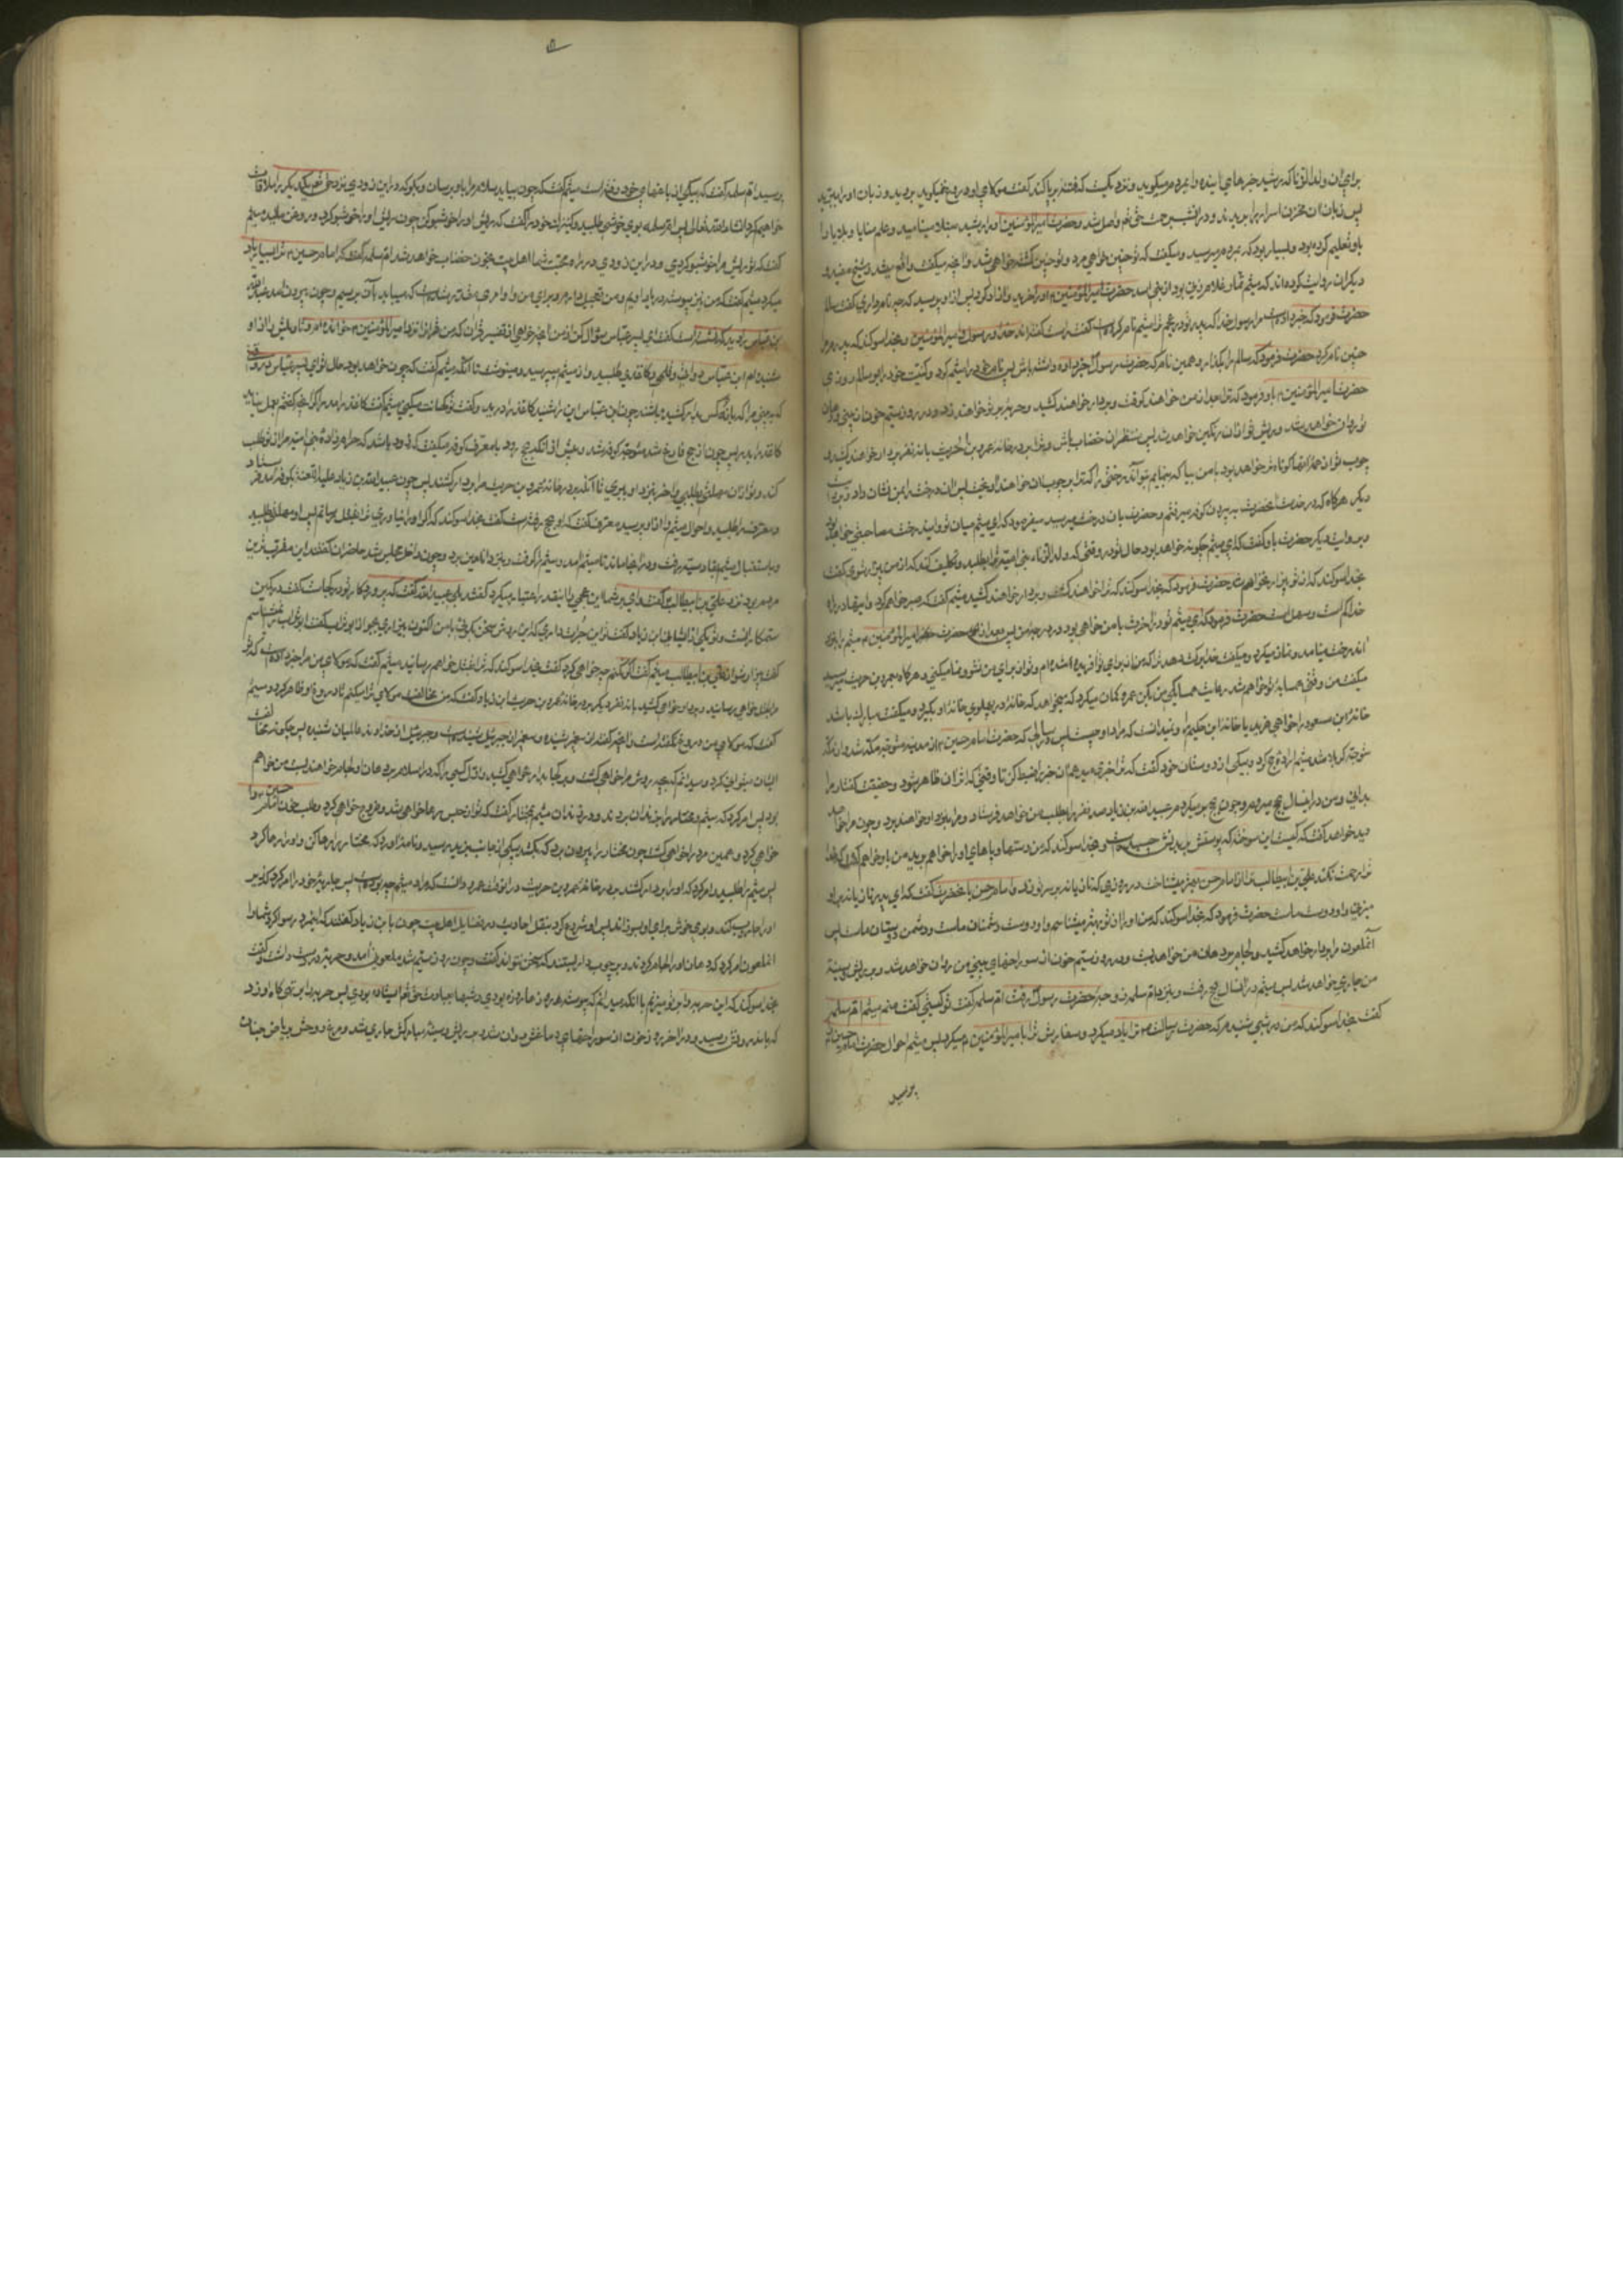 برای آن ولدالزنا که رشید خبرهای آینده را بمردم میگوید و نزدیکست که فتنه بر پا کند گفت مولای او دروغ نمیگوید برید و زبان او را ببرید
پس زبان آن مخزن اسرار را بریدند و در آن شب برحمت حق تعالی واصل شد و حضرت امیرالمؤمنین او را رشید مینامید و علم منایا و بلایا را
باو تعلیم کرده بود و بسیار بود که بمردم میرسید و میگفت که تو چنین خواهی مرد و تو چنین کشته خواهی شد و آنچه میگفت واقع میشد و شیخ مفید و
دیگران روایت کرده‌اند که میثم تمار غلام زنی بود از بنی اسد حضرت امیرالمؤمنین او را خرید و آزاد کرد پس از او پرسید که چه نام داری گفت سالم
حضرت فرمود که خبر داد مرا رسول خدا که پدر تو در عجم ترا میثم نام کرده است گفت راست گفته‌اند خدا و رسول و امیرالمؤمنین و بخدا سوگند که پدرم مرا
چنین نام کرد حضرت فرمود که سالم را بگذار و همین نام که حضرت رسول خبر داده داشته باش پس نام خود را میثم کرد و کنیت خود را ابو سالم روزی
حضرت امیرالمؤمنین باو فرمود که ترا بعد از من خواهند گرفت و بردار خواهند کشید و حربه بر تو خواهند زد و در روز سیم خون از بینی و دهان
تو روان خواهد شد و ریش تو از آن رنگین خواهد شد پس منتظر آن خضاب باش و ترا بر در خانه عمرو بن حریث با نه نفر بردار خواهند کشید و
چوب تو از همهٔ آنها کوتاه‌تر خواهد بود با من بیا که بنمایم بتو آن درختی را که ترا بر چوب آن خواهند آویخت پس آن درخت را بمن نشان داد و بروایت
دیگر هرگاه که در خدمت آنحضرت به بیرون کوفه میرفتم و حضرت بآن درخت میرسید میفرمود که ای میثم میان تو و این درخت مصاحبتی خواهد بود
بروایت دیگر حضرت باو گفت که ای میثم چگونه خواهد بود حال تو در وقتی که ولد الزنای بنی امیه ترا بطلبد و تکلیف کند که از من بیزار شوی گفت
بخدا سوگند که از تو بیزار نخواهم شد حضرت فرمود که بخدا سوگند که ترا خواهند کشت و بردار خواهند کشید میثم گفت که صبر خواهم کرد و اینها در راه
خدا کم است و سهل است حضرت فرمود که ای میثم تو در آخرت با من خواهی بود و در درجه من پس بعد از حضرت امیرالمؤمنین میثم بنزد
آن درخت میآمد و نماز میکرد و میگفت خدا برکت دهد ترا که من از برای تو آفریده شده‌ام و تو از برای من نشو و نما میکنی و هرگاه بعمرو بن حریث میرسید
میگفت من وقتی همسایه تو خواهم شد رعایت همسایگی من بکن عمرو گمان میکرد که میخواهد که خانه در پهلوی خانه او بگیرد و میگفت مبارک باشد
خانه ابن مسعود را خواهی خرید یا خانه ابن حکیم را و نمیدانست که مراد او چیست پس در سالی که حضرت امام حسین از مدینه متوجه مکه شد و از مکه
متوجه کربلا شد میثم اراده حج کرد و بیکی از دوستان خود گفت که ترا خبری میدهم آن خبر را ضبط کن تا وقتی که اثر آن ظاهر شود و حقیقت گفتار مرا
بدانی و من در این سال بحج میروم و چون بحج برمیگردم عبید الله بن زیاد صد نفر را بطلب من خواهد فرستاد و مرا بنزد او خواهند برد و چون مرا
دید خواهد گفت که
ترا رحمت نکند علی بن ابیطالب
میزنی و او دوست ماست حضرت فرمود که بخدا سوگند که من او را از تو بهتر میشناسم و او دوست دشمنان ماست و دشمن دوستان ماست پس
آن ملعون مرا بردار خواهد کشید و لجام بر دهان من خواهد بست و در روز سیم خون از سوراخهای بینی من روان خواهد شد و بر ریش و سینه
من جاری خواهد شد پس میثم در آن سال بحج رفت و بنزد ام سلمه زوجه حضرت رسول رفت ام سلمه گفت تو کیستی گفت منم میثم ام سلمه
گفت بخدا سوگند که من در شبی شنیدم که حضرت رسالت ترا یاد میکرد و سفارش ترا بامیرالمؤمنین میکرد پس میثم احوال حضرت امام حسین را
پرسید
پرسید ام سلمه گفت که بیکی از باغهای خود رفته است میثم گفت که چون بیاید سلام مرا باو برسان و بگو که در این زودی نزد حق تعالی یکدیگر را ملاقات
خواهیم کرد انشاء الله تعالی پس ام سلمه بوی خوشی طلبید و کنیزک خود را گفت که ریش او را خوشبو کن چون ریش او را خوشبو کرد و روغن مالید میثم
گفت که تو ریش مرا خوشبو کردی و در این زودی در راه محبت شما اهل بیت بخون خضاب خواهد شد ام سلمه گفت که امام حسین ترا بسیار یاد
میکرد میثم گفت که من نیز پیوسته در یاد اویم و من تعجیل دارم و برای من و او امری مقدر شده است که میباید بآن برسیم و چون بیرون آمد عبدالله
بن عباس را دید که نشسته است گفت ای پسر عباس سؤال کن از من آنچه خواهی از تفسیر قرآن که من قرآن را نزد امیرالمؤمنین خوانده‌ام و تأویلش را از او
شنیده‌ام ابن عباس دواتی و قلمی و کاغذی طلبید و از میثم میپرسید و مینوشت تا آنکه میثم گفت که چون خواهد بود حال تو ای پسر عباس در وقتی
که ببینی مرا که با نه کس بدار کشیده باشند چون ابن عباس این را شنید کاغذ را درید و گفت تو کهانت میکنی میثم گفت کاغذ را مدر اگر آنچه گفتم بعمل نیاید
کاغذ را بدر پس چون از حج فارغ شد متوجه کوفه شد و پیش از آنکه بحج رود با معرف کوفه میگفت که زود باشد که حرامزاده بنی امیه مرا از تو طلب
کند و تو از آن مهلتی بطلبی و آخر بنزد او ببری تا آنکه بر در خانه عمرو بن حریث مرا بردار کشند پس چون عبید الله بن زیاد علیه اللعنه بکوفه آمد فرستاد
و معرف را طلبید و احوال میثم را از او پرسید معرف گفت که او بحج رفته است گفت بخدا سوگند که اگر او را نیاوری ترا بقتل برسانم پس او مهلتی طلبید
و باستقبال میثم بقادسیه رفت و در آنجا ماند تا میثم آمد و میثم را گرفت و بنزد آن لعین برد و چون داخل مجلس شد حاضران گفتند این مقرب‌ترین
مردم بود نزد علی بن ابیطالب گفت وای بر شما این عجمی را اینقدر اعتبار میکرد گفتند بلی عبید الله گفت که پروردگار تو در کجاست گفت در کمین
ستمکارانست و تو یکی از ایشانی ابن زیاد گفت تو این جرأت داری که این روش سخن بگوئی با من اکنون بیزاری بجو از ابو تراب گفت ابو تراب نمیشناسم
گفت بیزار شو از علی بن ابیطالب میثم گفت اگر نکنم چه خواهی کرد گفت بخدا سوگند که ترا بقتل خواهم رسانید میثم گفت که مولای من مرا خبر داده است که تو
مرا بقتل خواهی رسانید و بردار خواهی کشید با نه نفر دیگر بر در خانه عمرو بن حریث ابن زیاد گفت که من مخالفت مولای ترا میکنم تا دروغ او ظاهر گردد میثم
گفت که مولای من دروغ نگفته است و آنچه گفته از پیغمبر شنیده و پیغمبر از جبرئیل شنیده است و جبرئیل از خداوند عالمیان شنیده پس چگونه مخالفت
ایشان میتوانی کرد و میدانم که بچه روش مرا خواهی کشت و در کجا بدار خواهی کشید و اول کسی را که در اسلام بر دهان او لجام خواهند بست من خواهم
بود پس امر کرد که میثم و مختار را بزندان بردند و در زندان میثم بمختار گفت که تو از حبس رها خواهی شد و خروج خواهی کرد و طلب خون امام حسین را
خواهی کرد و همین مرد را خواهی کشت چون مختار را بیرون برد که بکشد پیکی از جانب یزید رسید و نامه آورد که مختار را رها کن و او را رها کرد
پس میثم را طلبید و امر کرد که او را بردار کشند بر در خانه عمرو بن حریث در آن وقت عمرو دانست که مراد میثم چه بوده است پس جاریه خود را امر کرد که زیر
او را جاروب کند و بوی خوش برای او بسوزاند پس او شروع کرد بنقل احادیث در فضایل اهل بیت چون بابن زیاد گفتند که این مرد رسوا کرد شما را
آن ملعون امر کرد که دهان او را لجام کردند و بر چوب دار بستند که سخن نتواند گفت و چون روز سیم شد ملعونی آمد و حربه در دست داشت و گفت
بخدا سوگند که این حربه را بر تو میزنم با آنکه میدانم که پیوسته روزها روزه بودی و شبها بعبادت حق تعالی ایستاده بودی پس حربه را بر تهی‌گاه او زد
که باندرونش رسید و در آخر روز خون از سوراخهای دماغش روان شد و بر ریش و سینه مبارکش جاری شد و مرغ روحش بریاض جنان